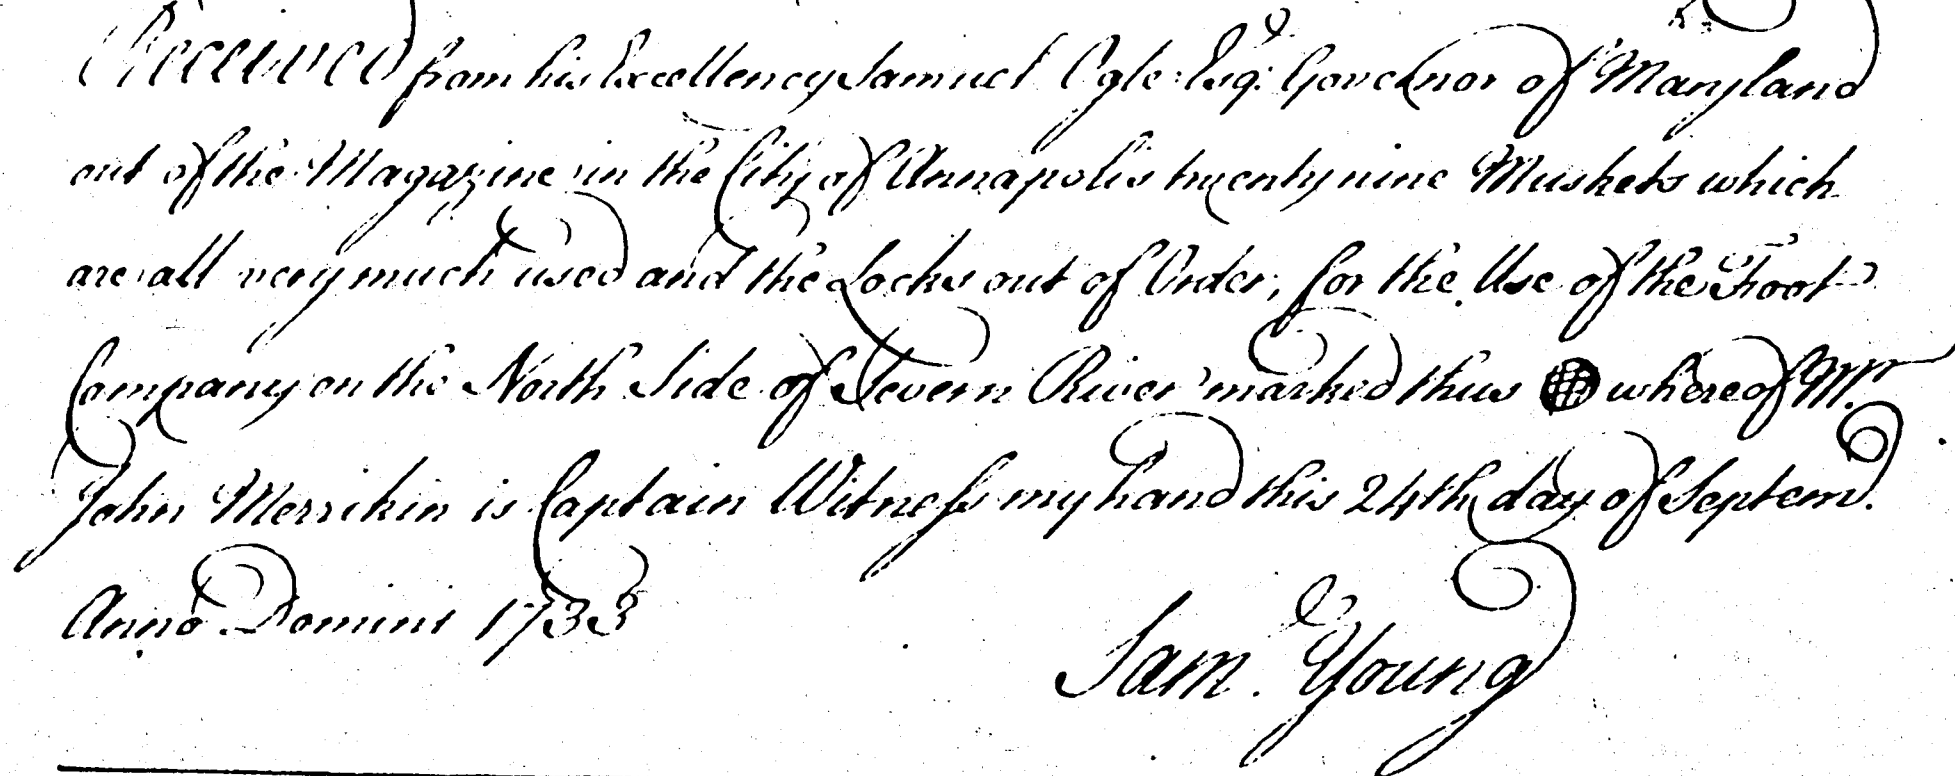 Received from his Excellency Samuel Ogle Esqr. Governor of Maryland
out of the Magazine in the City of Annapolis twenty nine Muskets which
are all very much used and the Locks out of Order, for the Use of the Foot
Company on the North Side of Severn River marked thus whereof Mr.
John Merrikin is Captain Witness my hand this 24th day of Septem.
Anno Domini 1733
Sam. Young